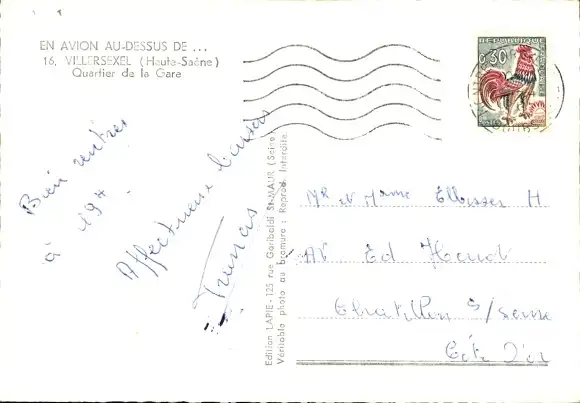 EN AVION AU-DESSUS DE ...
16. VILLERSEXEL (Haute-Saône)
Quartier de la Gare
REPUBLIQUE
0,30
Bien rentrés
à 19H
Affectueux baisers
Francis
Edition LAPIE - 125 rue Garibaldi St-MAUR (Seine)
Véritable photo au bromure : Reprod. Interdite.
Mr et Mme H
AV Ed
Chatillon s/ Seine
Côte d'or